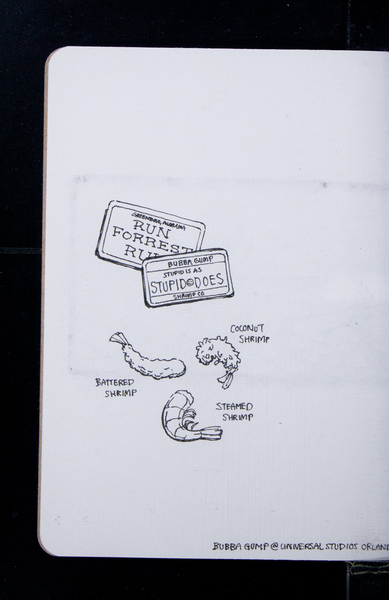 GREENBOW, ALABAMA
RUN
FORREST
RUN
BUBBA GUMP
STUPID IS AS
STUPID DOES
SHRIMP CO
COCONUT
SHRIMP
BATTERED
SHRIMP
STEAMED
SHRIMP
BUBBA GUMP @ UNIVERSAL STUDIOS ORLAN